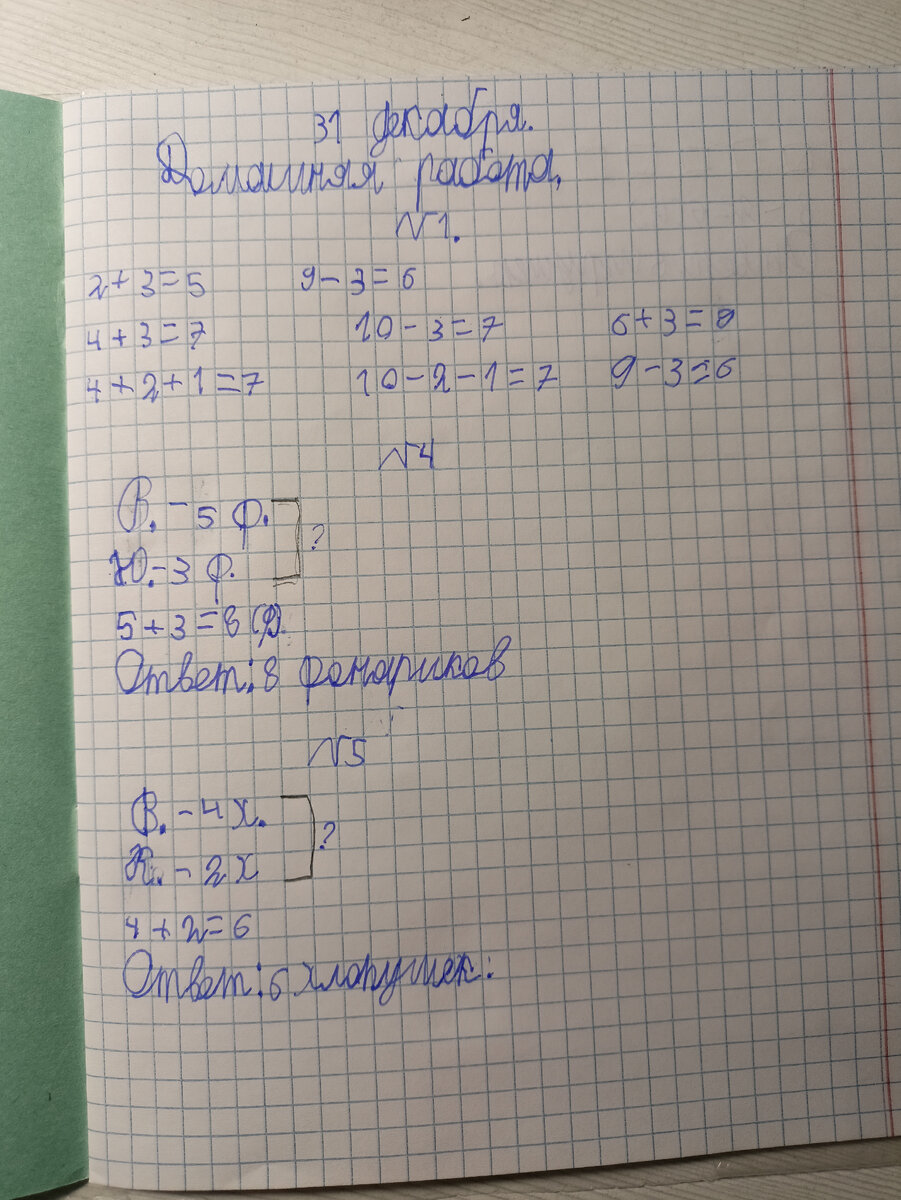 31 декабря.
Домашняя работа.
N1.
2+3=5 9-3=6
4+3=7 10-3=7 6+3=9
4+2+1=7 10-2-1=7 9-3=6
N4
В. - 5 ф.
?
Ю. - 3 ф.
5+3=8 (ф).
Ответ: 8 фонариков
N5
В. - 4 х.
?
К. - 2 х
4+2=6
Ответ: 6 хлопушек.